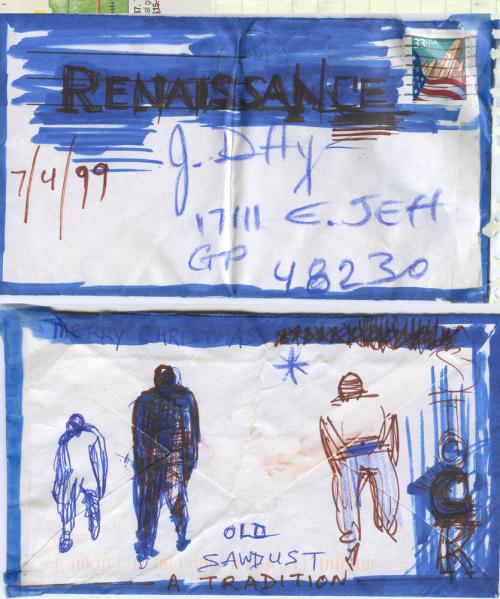 33 USA
RENAISSANCE
7/4/99
J. Dffy
17111 E. JEFF
GP 48230
MERRY CHRISTMAS
OLD
SAWDUST
A TRADITION